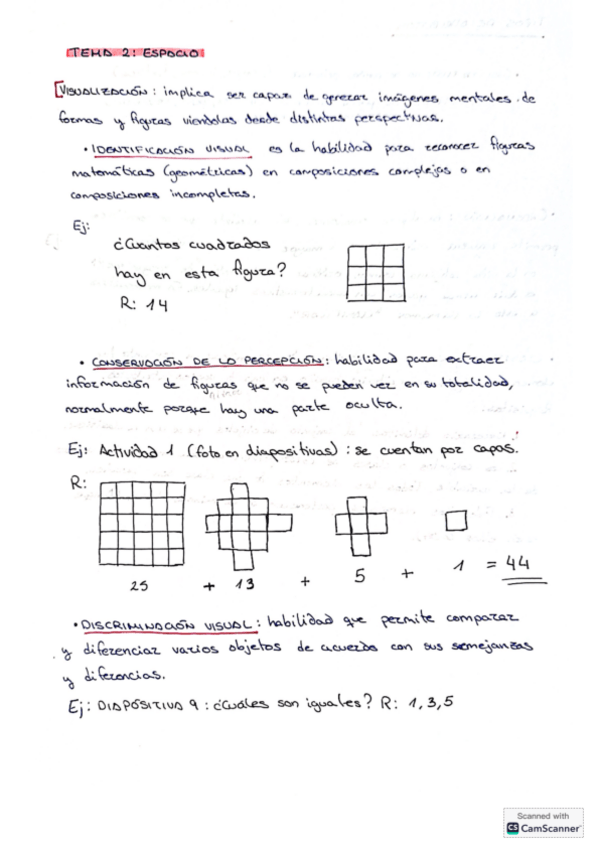 TEMA 2: ESPACIO
[VISUALIZACIÓN: implica ser capaz de generar imágenes mentales de
formas y figuras viendolas desde distintas perspectivas.
• IDENTIFICACIÓN VISUAL es la habilidad para reconocer figuras
matemáticas (geométricas) en composiciones complejas o en
composiciones incompletas.
Ej:
¿Cuantos cuadrados
hay en esta figura?
R: 14
• CONSERVACIÓN DE LA PERCEPCIÓN: habilidad para extraer
información de figuras que no se pueden ver en su totalidad,
normalmente porque hay una parte oculta.
Ej: Actividad 1 (foto en diapositivas): se cuentan por capas.
R:
25 + 13 + 5 + 1 = 44
• DISCRIMINACIÓN VISUAL: habilidad que permite comparar
y diferenciar varios objetos de acuerdo con sus semejanzas
y diferencias.
Ej: DIAPOSITIVA 9: ¿Cuáles son iguales? R: 1,3,5
Scanned with
CS CamScanner